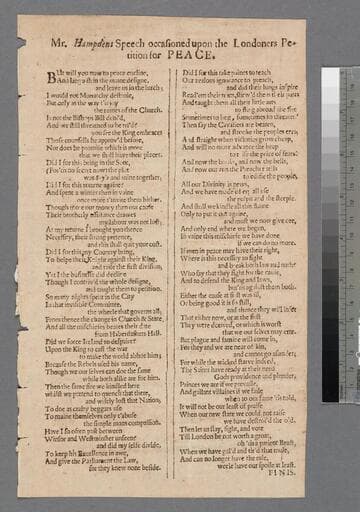 Mr. Hampdens Speech occasioned upon the Londoners Pe-
tition for PEACE.
BUt will you now to peace encline,
And languish in the maine designe,
and leave us in the lurch;
I would not Monarchy destroie,
But only as the way t'injoy
the ruines of the Church.
Is not the Bishops Bill deni'd,
And we still threatned to be tri'de
you see the King embraces
Those counsells he approv'd before,
Nor does he promise which is more
that we shall have their places.
Did I for this bring in the Scot,
(For tis no secret now) the plot
was Say's and mine together;
Did I for this returne againe
And spend a winter there in vaine
once more t'invite them hither.
Though ore our money than our cause
Their brotherly assistance drawes
my labour was not lost,
At my returne I brought you thence
Necessity, their strong pretence,
and this shall quit your cost.
Did I for this my Country bring,
To helpe their Knight against their King,
and raise the first division,
Yet I the businesse did decline
Though I contriv'd the whole designe,
and taught them to petition.
So many nights spent in the City
In that invisible Committee,
the wheele that governs all;
From thence the change in Church & State,
And all the mischiefes beares their date
from Haberdashers Hall.
Did we force Ireland to despaire
Upon the King to cast the war
to make the world abhor him;
Because the Rebels used his name,
Though we our selves can doe the same
while both alike are for him.
Then the same fire we kindled here
whilst we pretend to quench that there,
and wisely lost that Nation;
To doe as crafty beggars use
To maime themselves only t'abuse
the simple mans compassion.
Have I so often past between
Winsor and Westminster unseene
and did my selfe divide,
To keep his Excellence in awe,
And give the Parliament the Law,
for they knew none beside.
Did I for this take paines to teach
Our zealous ignorance to preach,
and did their lungs inspire
Read'em their text, shew'd them their parts
And taught them all their little arts
to fling abroad the fire
Sometimes to beg, sometimes to threaten
Then say the Cavaliers are beaten,
and stroake the peoples eres;
And streight when victory grows cheap,
And will no more advance the heap
to raise the price of feares.
And now the books, and now the bells,
And now our act the Preacher tells
to edifie the people;
All our Divinity is news,
And we have made of equall use
the pulpit and the steeple.
And shall we kindle all this flame
Only to put it out againe,
and must we now give ore,
And only end where we begun,
In vaine this mischiefe we have done
if we can do no more.
If men in peace may have their right,
Where is this necessity to fight
and break both law and oath?
Who say that they fight for the cause,
And to defend the King and laws,
but 'tis against them both.
Either the cause at first was ill,
Or being good it is so still,
and thence they will infer
That either now, or at the first
They were deceived, or which is worst
that we our selves may erre.
But plague and famine will come in,
For they and we are neare of kin,
and cannot go asunder;
For while the wicked starve indeed,
The Saints have ready at their need
Gods providence and plunder.
Princes we are if we prevaile,
And gallant villaines if we faile
when to our fame 'tis told,
It will not be our least of praise
When our new state we could not raise
we have destroi'd the old.
Then let us stay, fight, and vote
Till London be not worth a groat,
oh 'tis a patient Beast,
When we have gal'd and tir'd that mule,
And can no longer have the rule,
weele have our spoile at least.
FINIS.